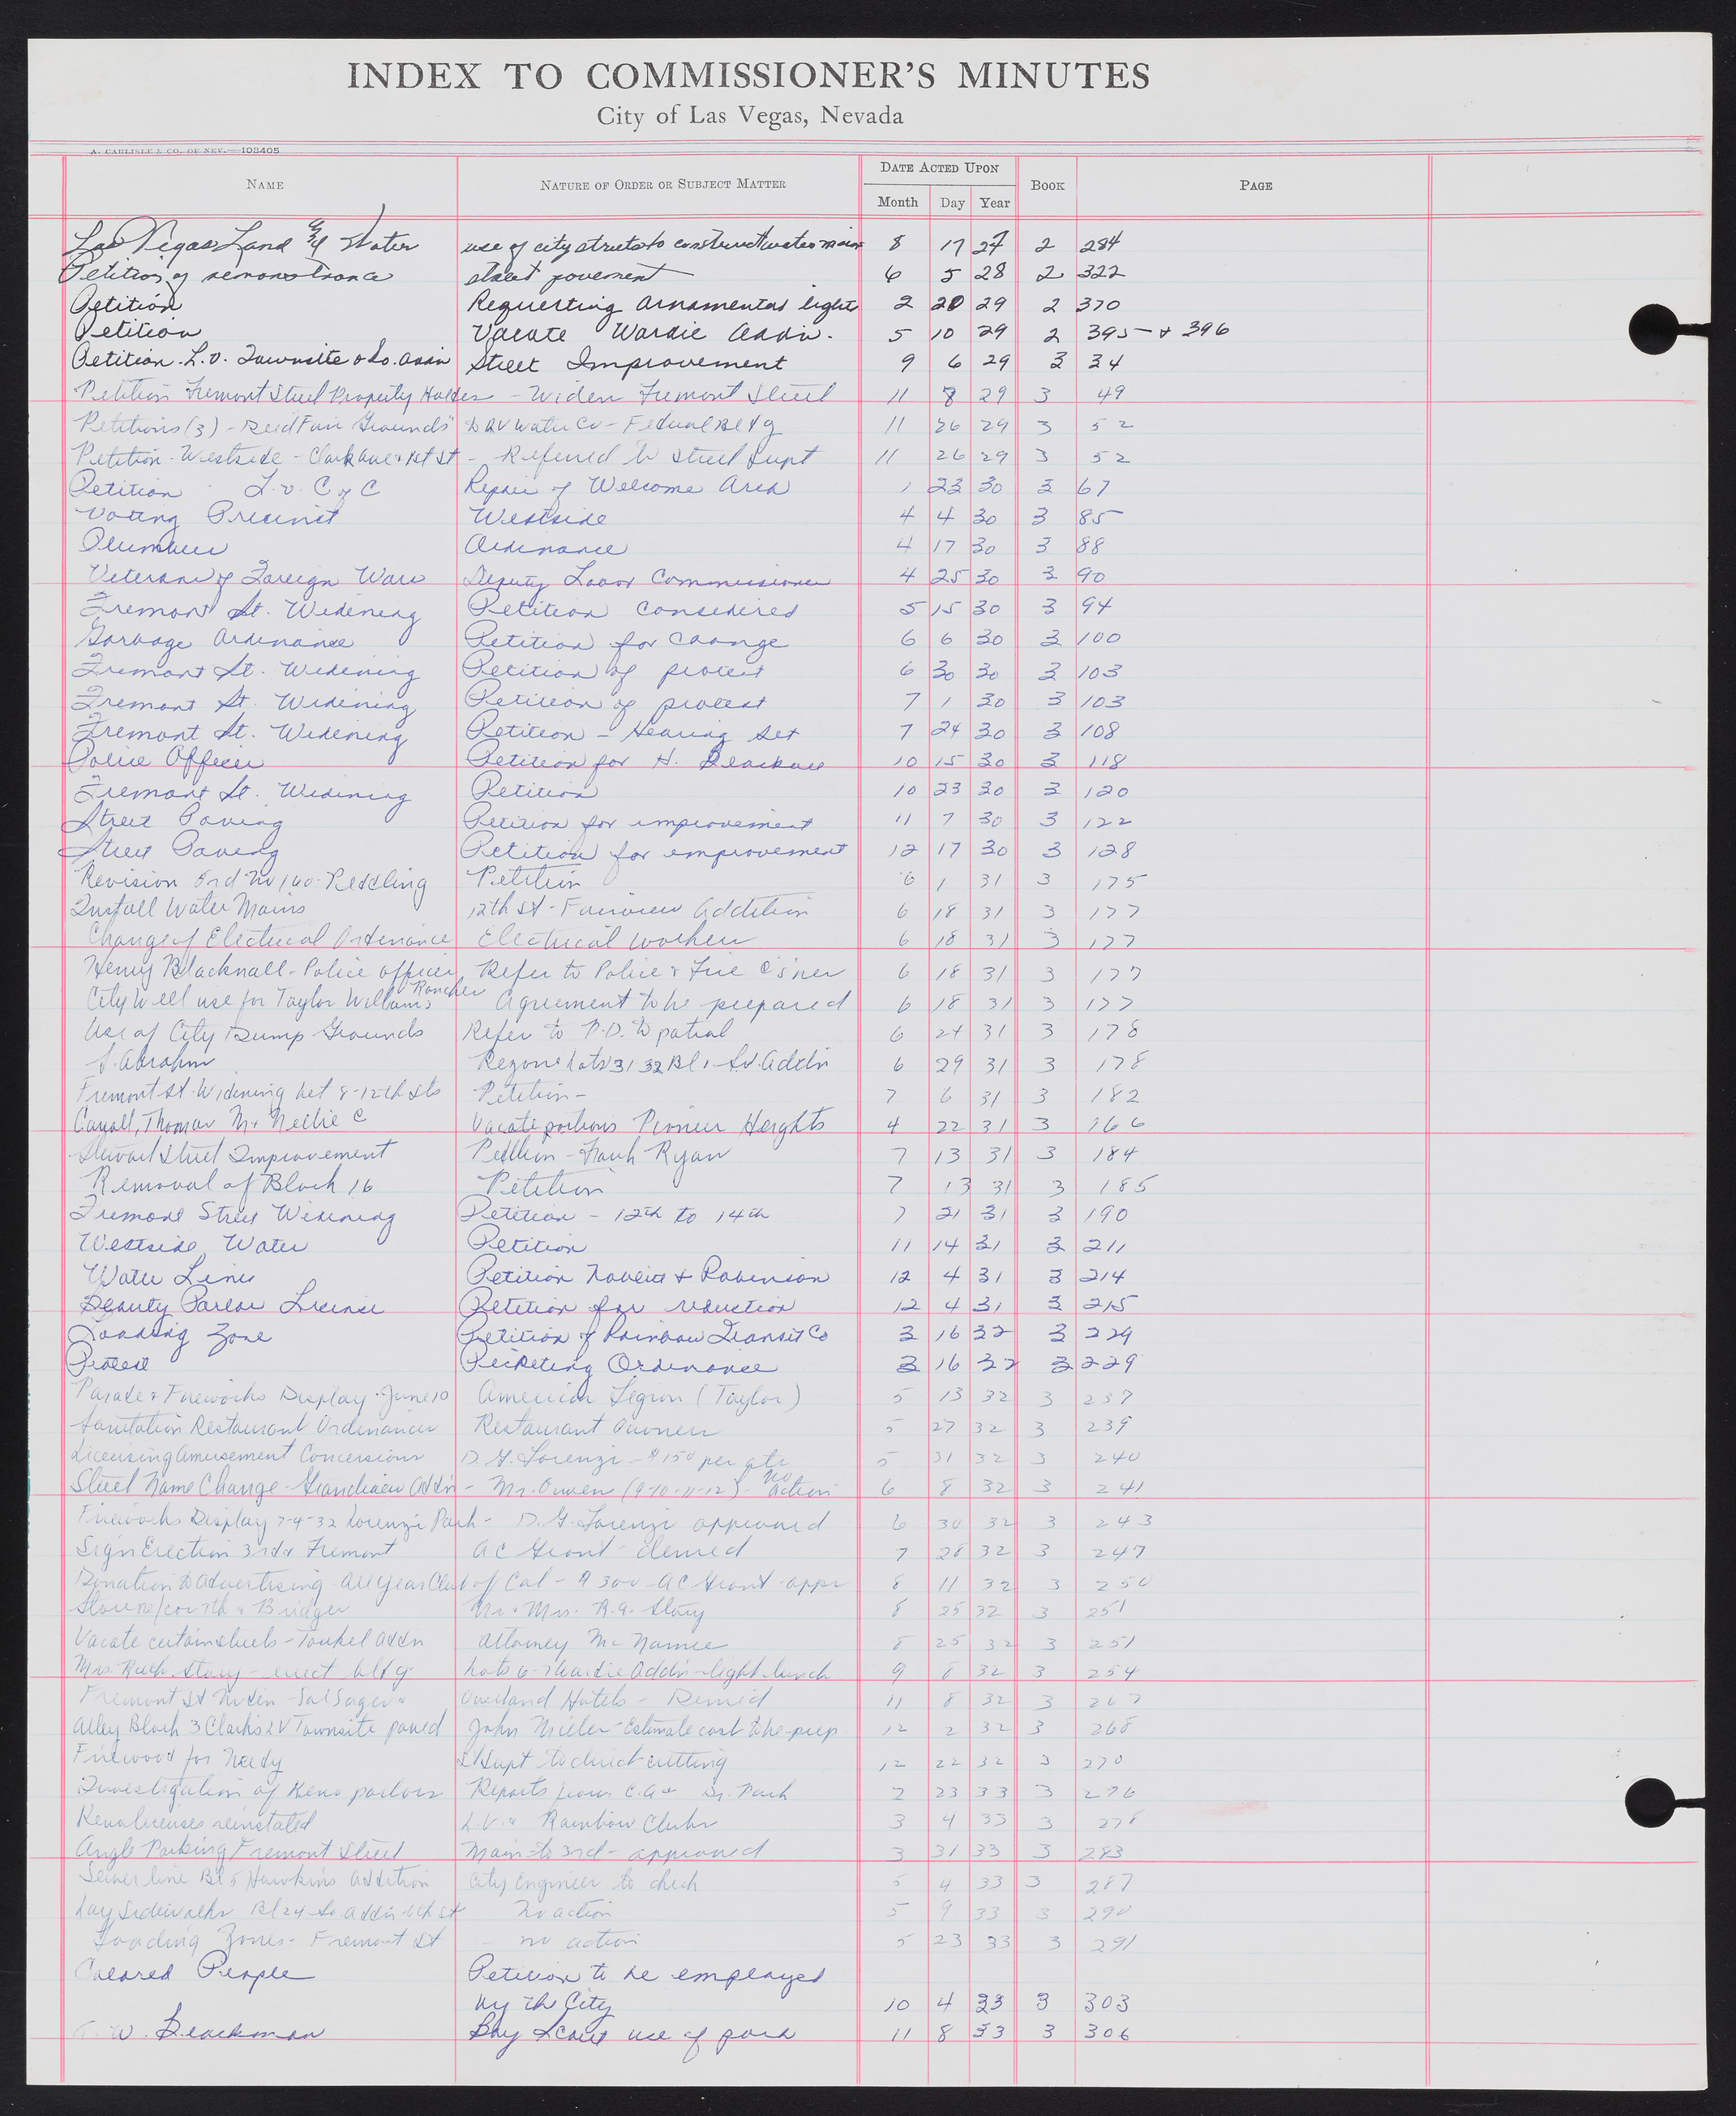 INDEX TO COMMISSIONER'S MINUTES
City of Las Vegas, Nevada
A. CARLISLE & CO. OF NEV.—108405
NAME NATURE OF ORDER OR SUBJECT MATTER DATE ACTED UPON BOOK PAGE
Month Day Year
Las Vegas Land & Water use of city streets to construct water main 8 17 27 2 284
Petition of remonstrance street pavement 6 5 28 2 322
Petition Requesting ornamental lights 2 20 29 2 370
Petition Vacate Wardie Addn. 5 10 29 2 395 & 396
Petition L.V. Townsite & So. Addn Street Improvement 9 6 29 3 34
Petition Fremont Street Property Holders - Widen Fremont Street 11 8 29 3 49
Petitions (3) - Deed Fair Grounds LV Water Co - Federal Bldg 11 26 29 3 52
Petition - Westside - Clark Ave & 1st St - Referred to Street Supt 11 26 29 3 52
Petition L.V. C of C Repair of Welcome Arch 1 23 30 3 67
Voting Precinct Westside 4 4 30 3 85
Plumbers Ordinance 4 17 30 3 88
Veterans of Foreign Wars Deputy Labor Commissioner 4 25 30 3 90
Fremont St. Widening Petition Considered 5 15 30 3 94
Garbage Ordinance Petition for change 6 6 30 3 100
Fremont St. Widening Petition of protest 6 30 30 3 103
Fremont St. Widening Petition of protest 7 1 30 3 103
Fremont St. Widening Petition - Hearing Set 7 24 30 3 108
Police Officer Petition for H. 10 15 30 3 118
Fremont St. Widening Petition 10 23 30 3 120
Street Paving Petition for improvement 11 7 30 3 122
Street Paving Petition for improvement 12 17 30 3 128
Revision Ord No 160 - Peddling Petition 6 1 31 3 175
Install Water Mains 12th St - Fairview Addition 6 18 31 3 177
Change of Electrical Ordinance Electrical workers 6 18 31 3 177
Henry Blacknall - Police officer Refer to Police & Fire C's'ner 6 18 31 3 177
City Well use for Taylor Williams Rancher Agreement to be prepared 6 18 31 3 177
Use of City Dump Grounds Refer to P.D. to patrol 6 24 31 3 178
J. Abraham Rezone Lots 31 32 Bl 1 So. Addn 6 29 31 3 178
Fremont St. Widening bet 8-12th Sts Petition - 7 6 31 3 182
Carroll, Thomas M & Nellie C Vacate portions Pioneer Heights 4 22 31 3 166
Stewart Street Improvement Petition - Frank Ryan 7 13 31 3 184
Removal of Block 16 Petition 7 13 31 3 185
Fremont Street Widening Petition - 12th to 14th 7 21 31 3 190
Westside Water Petition 11 14 31 3 211
Water Lines Petition Roberts & Robinson 12 4 31 3 214
Beauty Parlor License Petition for reduction 12 4 31 3 215
Loading Zone Petition of Rainbow Transit Co 3 16 32 3 229
Protest Picketing Ordinance 3 16 32 3 229
Parade & Fireworks Display - June 10 American Legion (Taylor) 5 13 32 3 237
Sanitation Restaurant Ordinances Restaurant owners 5 27 32 3 239
Licensing Amusement Concessions D. G. Lorenzi - $150 per qtr 5 31 32 3 240
Street Name Change - Grandview Addn - Mr. Owen (9-10-11-12) - no action 6 8 32 3 241
Fireworks Display 7-4-32 Lorenzi Park - D. G. Lorenzi approved 6 30 32 3 243
Sign Erection 3rd & Fremont A C Grant - denied 7 28 32 3 247
Donation to Advertising All Year Club of Cal - $300 - A C Grant - appr 8 11 32 3 250
Fourth & Bridger Mr. & Mrs. R. G. Story 8 25 32 3 251
Vacate certain streets - Addn Attorney McNamee 8 25 32 3 251
Mrs. Ruth Story - erect bldg. Lots 6-7 Wardie Addn - light lunch 9 8 32 3 254
Fremont St - Sal Sagev & Overland Hotels - Denied 11 8 32 3 267
Alley Block 3 Clarks LV Townsite paved John Miller - Estimate cost to be prep 12 2 32 3 268
Firewood for Needy St Supt to direct cutting 12 22 32 3 270
Investigation of Keno parlors Reports from C.A. & Dr. Park 2 23 33 3 276
Keno licenses reinstated L.V. & Rainbow Clubs 3 4 33 3 278
Angle Parking Fremont Street Main to 3rd - approved 3 31 33 3 283
Sewer line Bl 5 Hawkins Addition City Engineer to check 5 4 33 3 287
Lay Sidewalks Bl 24 So. Addn 6th St No action 5 9 33 3 290
Loading Zones - Fremont St - no action 5 23 33 3 291
Colored People Petition to be employed
by the City 10 4 33 3 303
W. Blackman Boy Scout use of park 11 8 33 3 306